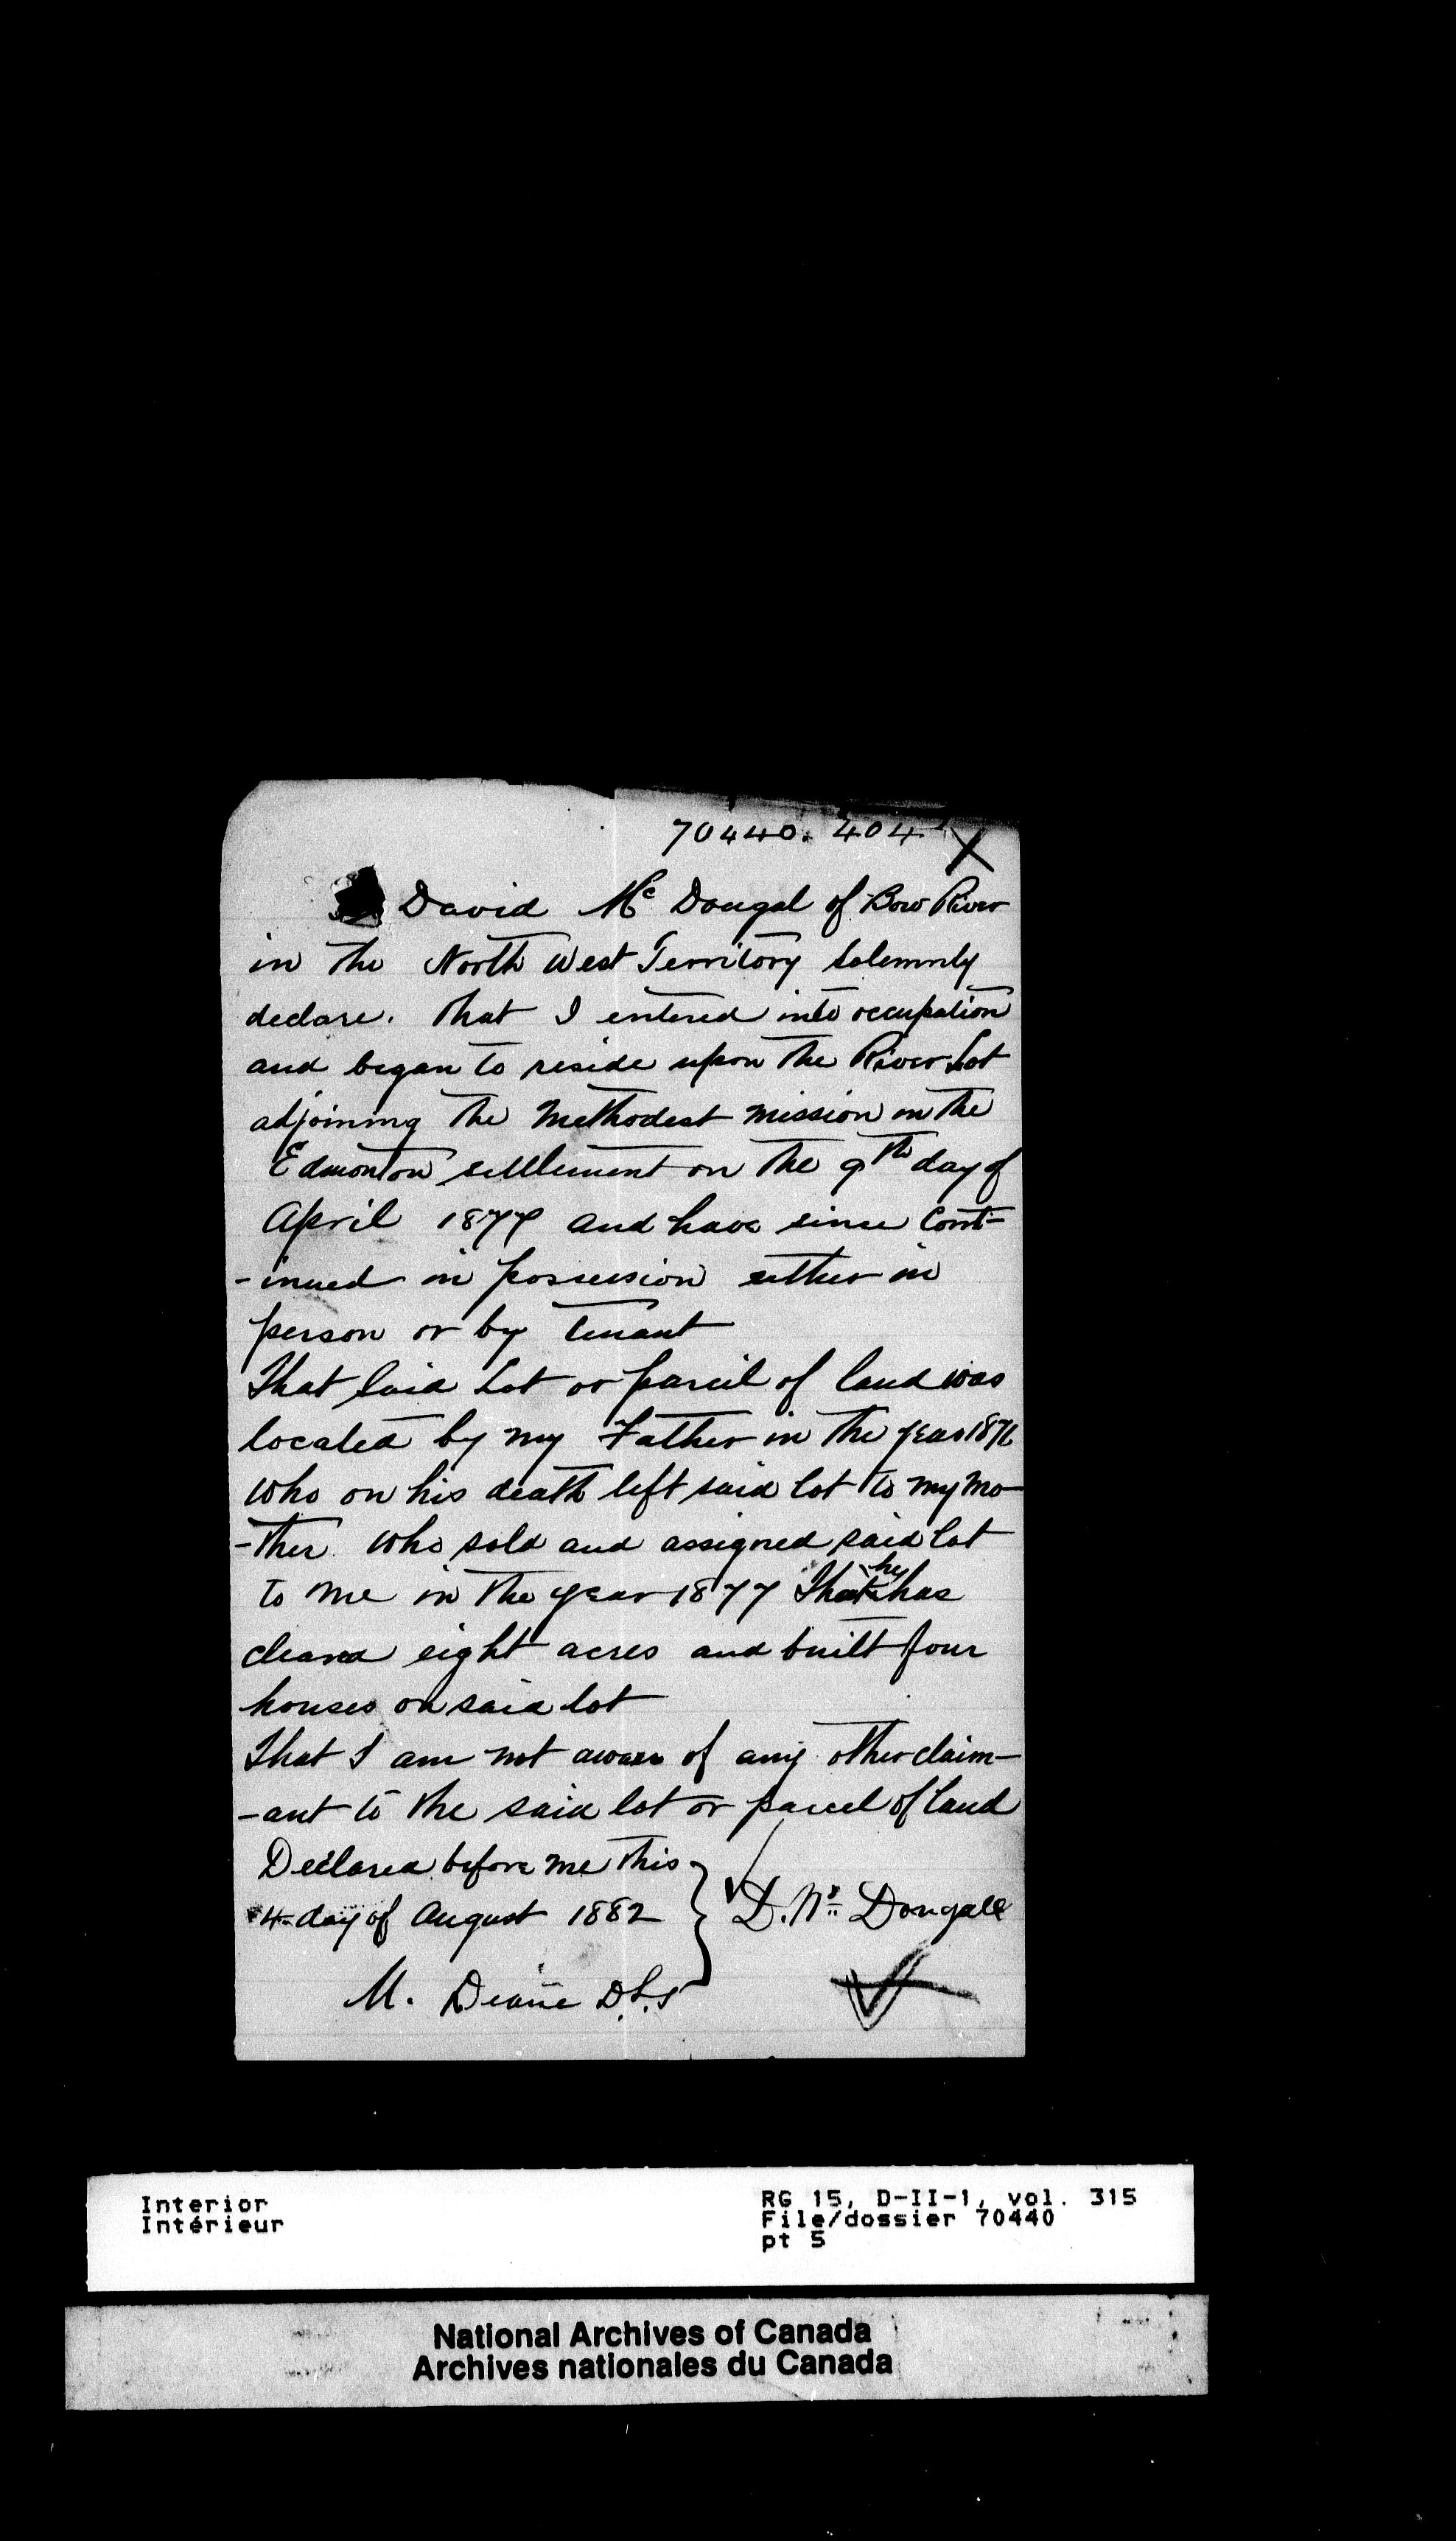 70440. 404
David Mc Dougal of Bow River
in the North West Territory Solemnly
declare. That I entered into occupation
and began to reside upon the River Lot
adjoining the Methodest Mission in the
Edmonton settlement on the 9th day of
April 1877 and have since Cont-
-inued in possession either in
person or by tenant
That said Lot or parcil of land was
located by my Father in the year
who on his death left said lot to my Mo
-ther who sold and assigned said lot
to me in the year 1877 That he has
cleared eight acres and built four
houses on said lot
That I am not aware of any other claim-
-ant to the said lot or parcel of land
Declared before me this
4 day of August 1882
D. Mc Dougall
M. Deane D.L.S
Interior
Intérieur
RG 15, D-II-1, vol. 315
File/dossier 70440
pt 5
National Archives of Canada
Archives nationales du Canada